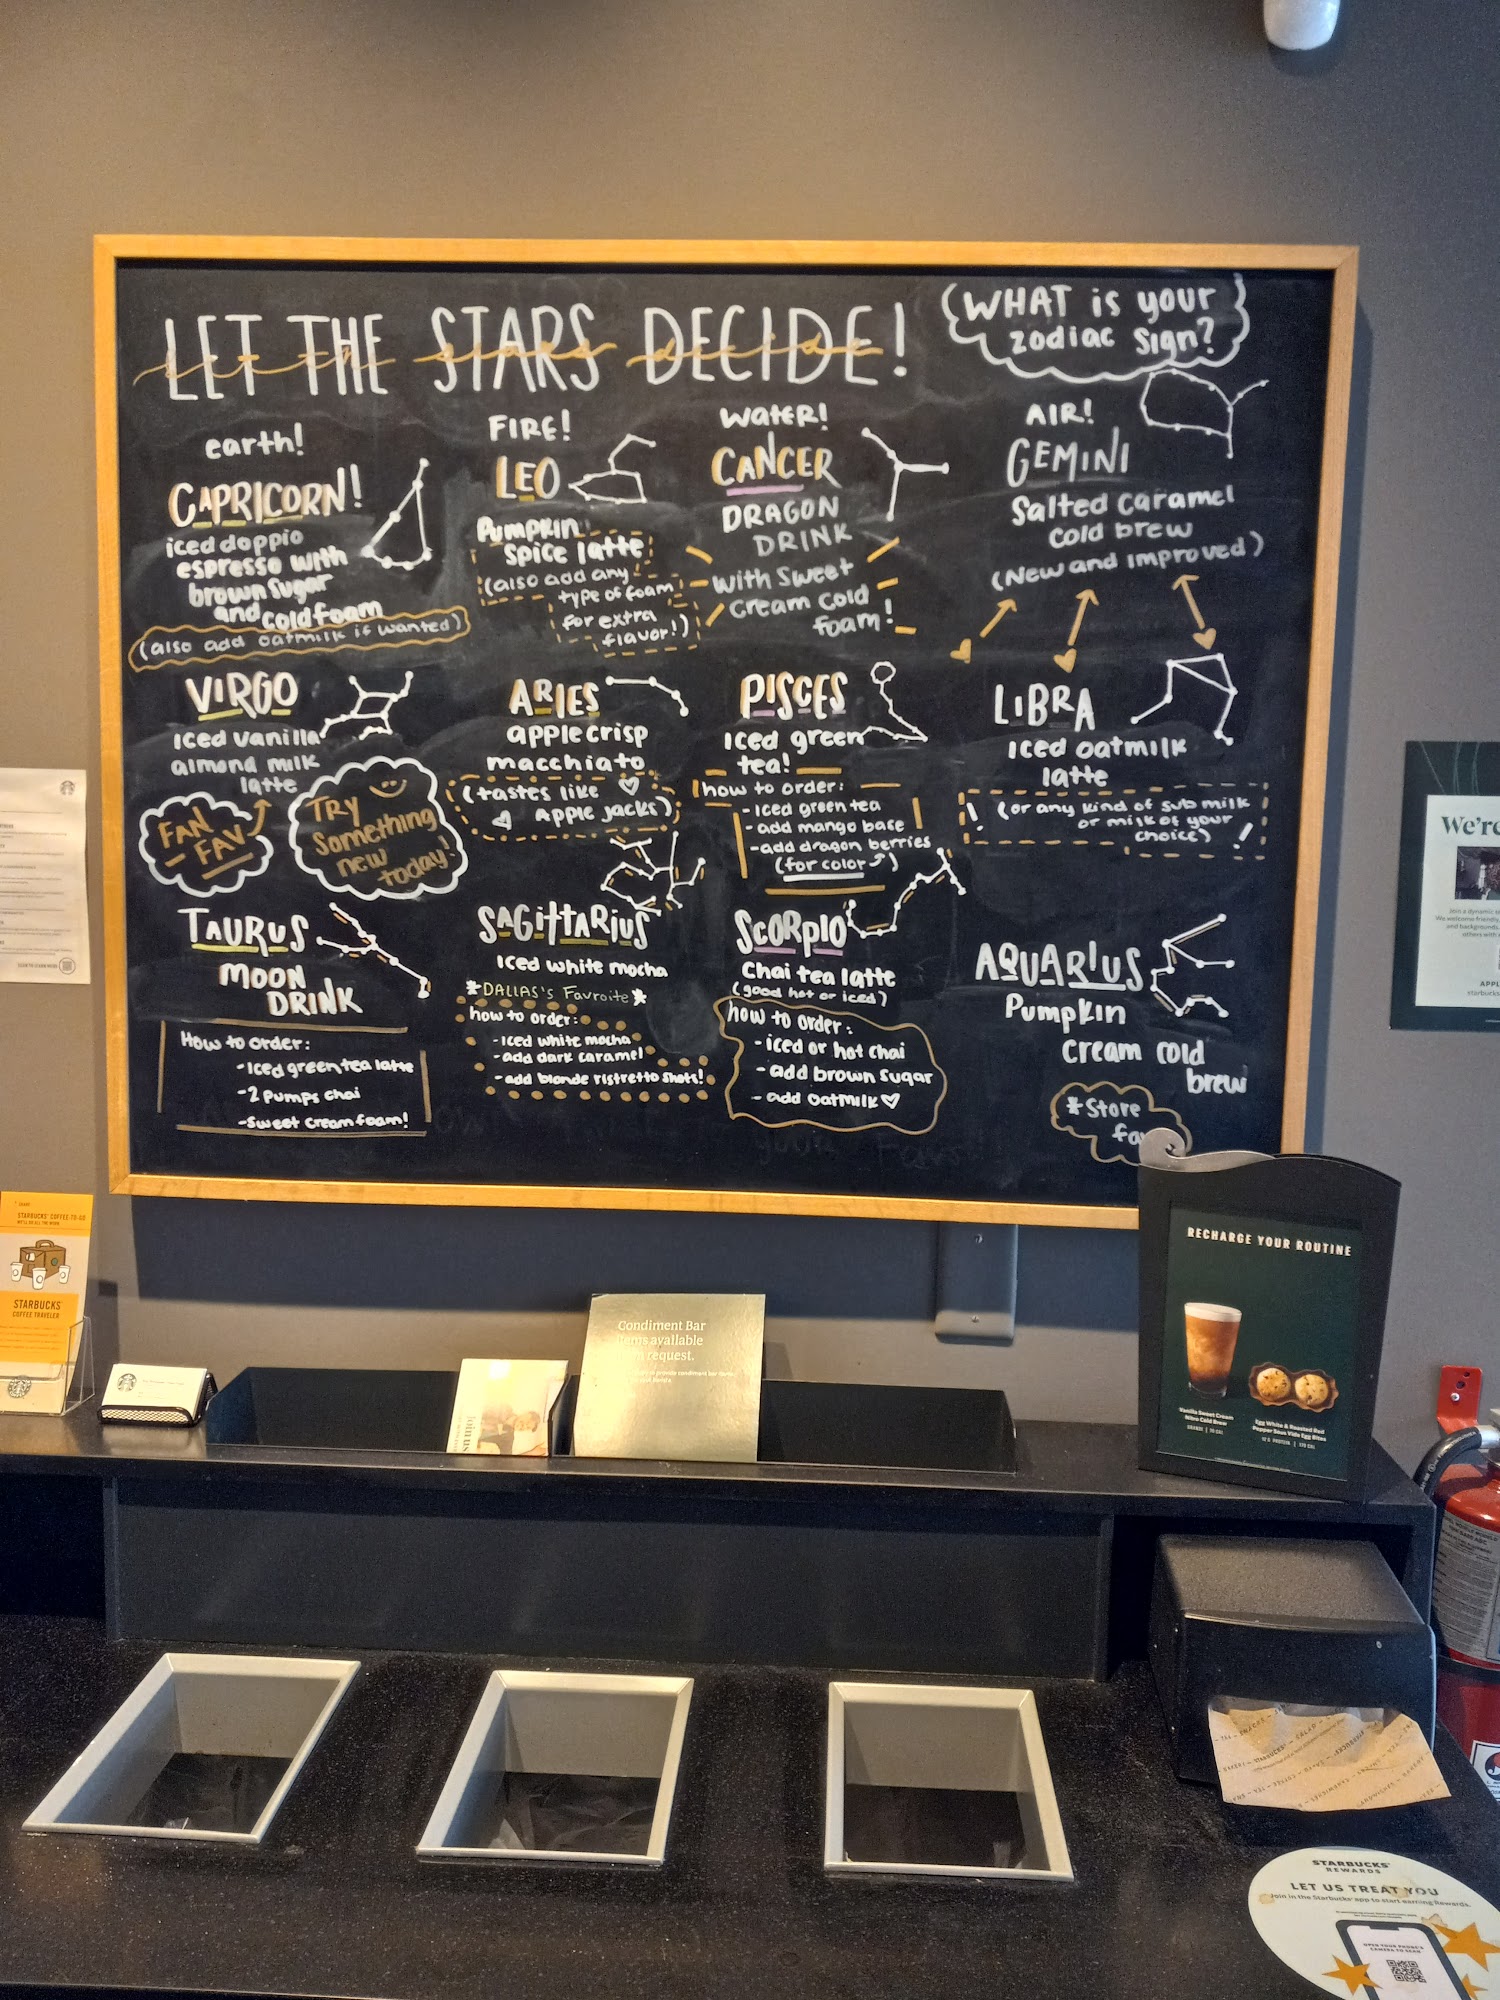 LET THE STARS DECIDE!
let the stars decide
WHAT is your
zodiac sign?
earth!
CAPRICORN!
iced doppio
espresso with
brown sugar
and cold foam
(also add oatmilk if wanted)
VIRGO
Iced vanilla
almond milk
latte
FAN
FAV
TRY
Something
new
today!
TAURUS
MOON
DRINK
How to order:
-Iced green tea latte
-2 pumps chai
-Sweet cream foam!
FIRE!
LEO
Pumpkin
Spice latte
(also add any
type of foam
for extra
flavor!)
ARIES
apple crisp
macchiato
(tastes like
Apple Jacks)
SAGITTARIUS
Iced white mocha
*DALLAS's Favroite*
how to order:
-Iced white mocha
-add dark caramel
-add blonde ristretto shots!
Water!
CANCER
DRAGON
DRINK
with Sweet
Cream Cold
foam!
PISCES
Iced green
tea!
how to order:
-Iced green tea
-add mango base
-add dragon berries
(for color)
SCORPIO
Chai tea latte
(good hot or iced)
how to order:
-iced or hot chai
-add brown sugar
-add oatmilk
AIR!
GEMINI
Salted caramel
cold brew
(New and improved)
LIBRA
Iced oatmilk
latte
! (or any kind of sub milk
or milk of your
choice) !
AQUARIUS
Pumpkin
cream cold
brew
*Store
fa
We're
APPL
starbucks
STARBUCKS® COFFEE TO-GO
STARBUCKS®
COFFEE TRAVELER
Condiment Bar
items available
request.
Join us
RECHARGE YOUR ROUTINE
Vanilla Sweet Cream
Nitro Cold Brew
Egg White & Roasted Red
Pepper Sous Vide Egg Bites
STARBUCKS®
REWARDS
LET US TREAT YOU
Join in the Starbucks® app to start earning Rewards.
OPEN YOUR PHONE'S
CAMERA TO SCAN